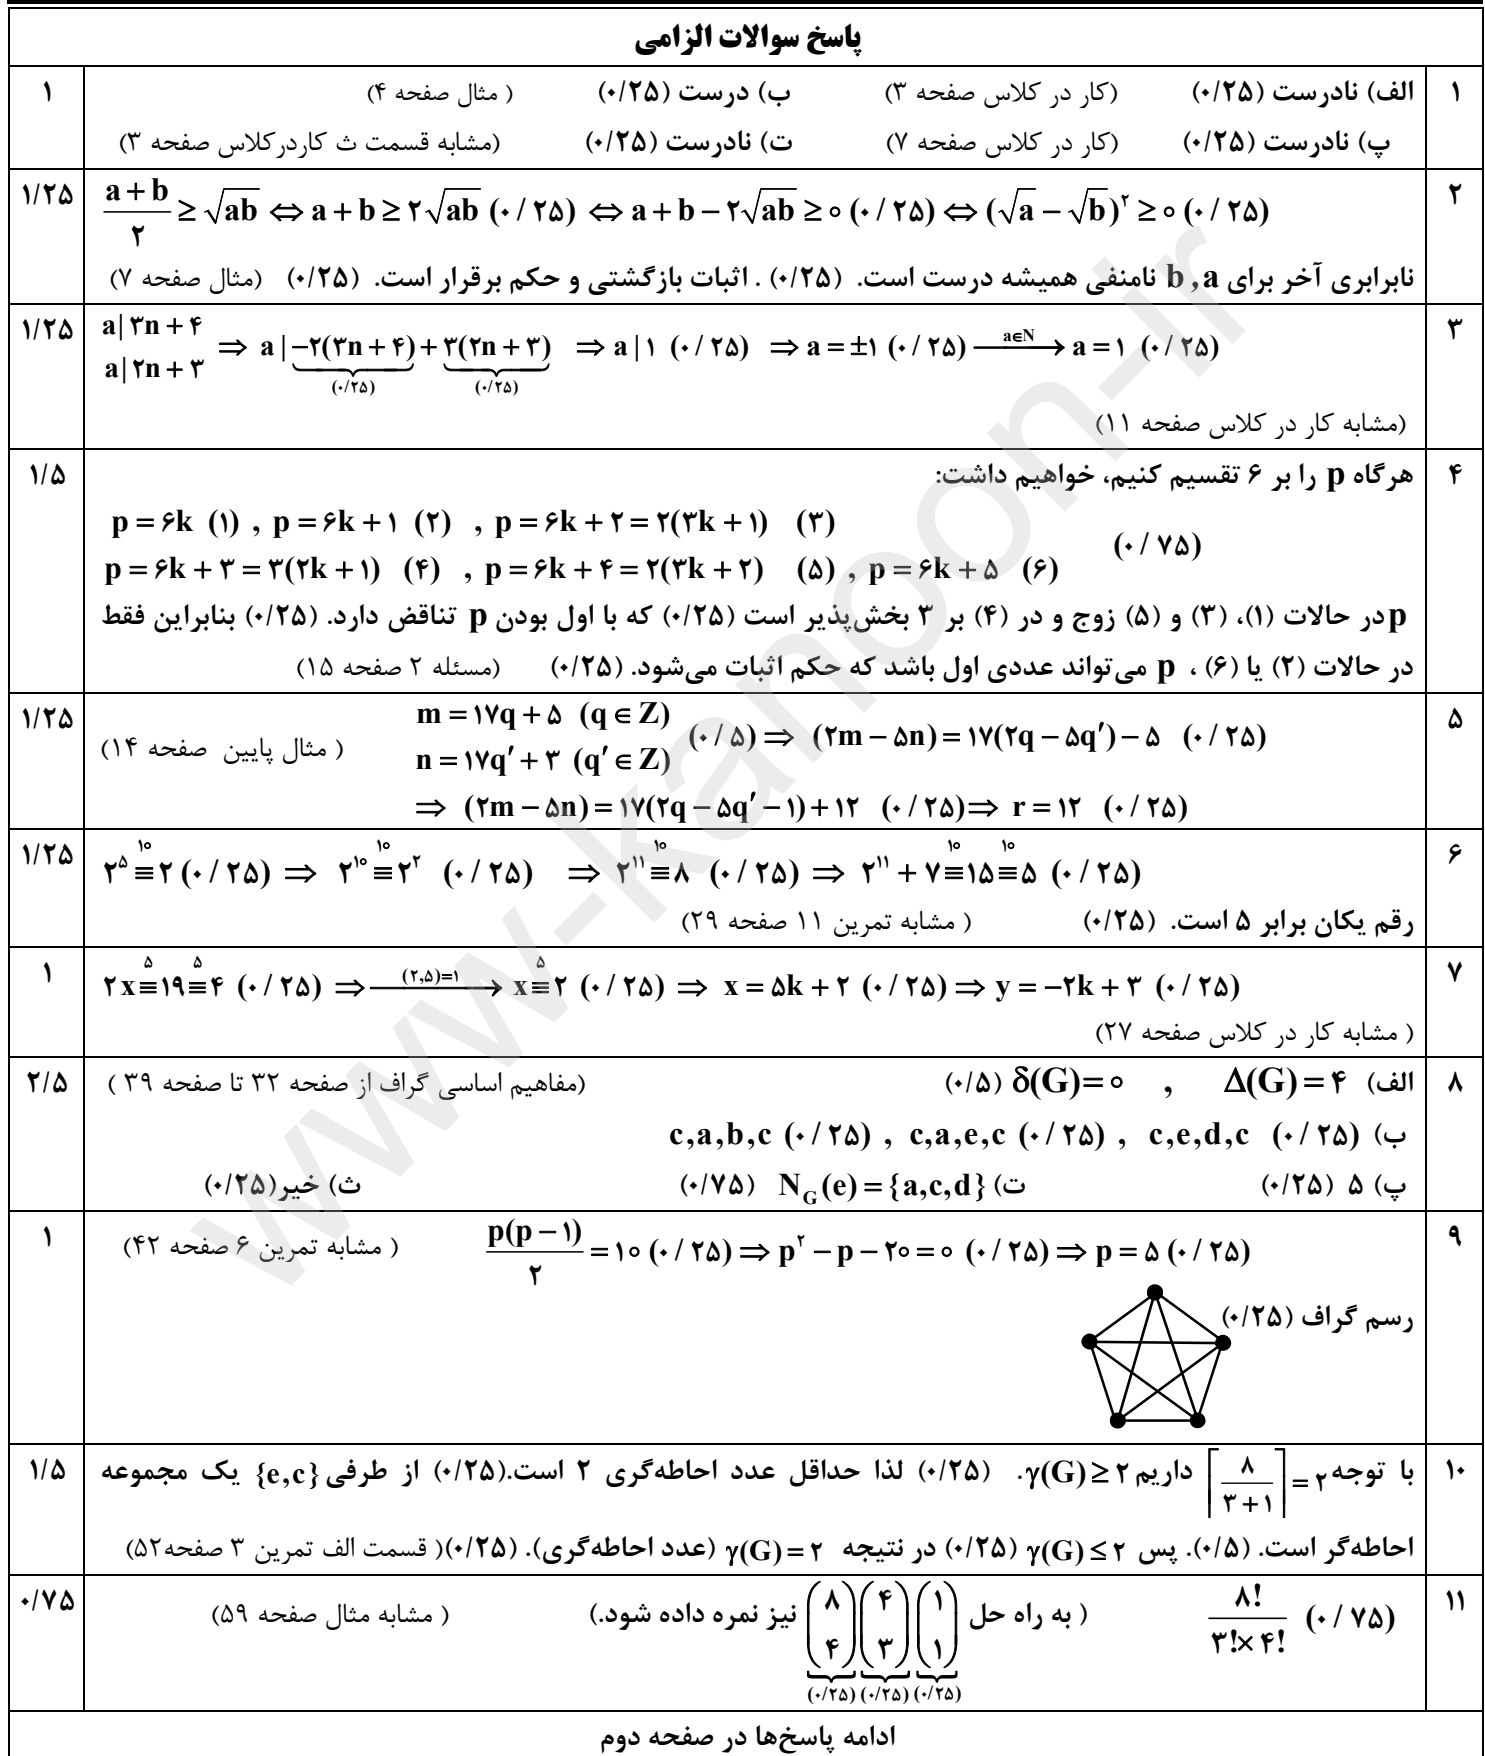 پاسخ سوالات الزامی
۱ الف) نادرست (۰/۲۵) (کار در کلاس صفحه ۳) ب) درست (۰/۲۵) ( مثال صفحه ۴) ۱
پ) نادرست (۰/۲۵) (کار در کلاس صفحه ۷) ت) نادرست (۰/۲۵) (مشابه قسمت ث کاردرکلاس صفحه ۳)
۲ (a+b)/۲ ≥ √ab ⇔ a+b ≥ ۲√ab (۰/۲۵) ⇔ a+b−۲√ab ≥ ۰ (۰/۲۵) ⇔ (√a−√b)^۲ ≥ ۰ (۰/۲۵) ۱/۲۵
نابرابری آخر برای b , a نامنفی همیشه درست است. (۰/۲۵) . اثبات بازگشتی و حکم برقرار است. (۰/۲۵) (مثال صفحه ۷)
۳ a|۳n+۴ a|۲n+۳ ⇒ a | −۲(۳n+۴) (۰/۲۵) + ۳(۲n+۳) (۰/۲۵) ⇒ a|۱ (۰/۲۵) ⇒ a=±۱ (۰/۲۵) —a∈N→ a=۱ (۰/۲۵) ۱/۲۵
(مشابه کار در کلاس صفحه ۱۱)
۴ هرگاه p را بر ۶ تقسیم کنیم، خواهیم داشت: ۱/۵
p=۶k (۱) , p=۶k+۱ (۲) , p=۶k+۲=۲(۳k+۱) (۳)
p=۶k+۳=۳(۲k+۱) (۴) , p=۶k+۴=۲(۳k+۲) (۵) , p=۶k+۵ (۶) (۰/۷۵)
p در حالات (۱)، (۳) و (۵) زوج و در (۴) بر ۳ بخش‌پذیر است (۰/۲۵) که با اول بودن p تناقض دارد. (۰/۲۵) بنابراین فقط
در حالات (۲) یا (۶) ، p می‌تواند عددی اول باشد که حکم اثبات می‌شود. (۰/۲۵) (مسئله ۲ صفحه ۱۵)
۵ m=۱۷q+۵ (q∈Z) n=۱۷q′+۳ (q′∈Z) (۰/۵) ⇒ (۲m−۵n)=۱۷(۲q−۵q′)−۵ (۰/۲۵) ( مثال پایین صفحه ۱۴) ۱/۲۵
⇒ (۲m−۵n)=۱۷(۲q−۵q′−۱)+۱۲ (۰/۲۵) ⇒ r=۱۲ (۰/۲۵)
۶ ۲^۵ ≡^۱۰ ۲ (۰/۲۵) ⇒ ۲^۱۰ ≡^۱۰ ۲^۲ (۰/۲۵) ⇒ ۲^۱۱ ≡^۱۰ ۸ (۰/۲۵) ⇒ ۲^۱۱+۷ ≡^۱۰ ۱۵ ≡^۱۰ ۵ (۰/۲۵) ۱/۲۵
رقم یکان برابر ۵ است. (۰/۲۵) ( مشابه تمرین ۱۱ صفحه ۲۹)
۷ ۲x ≡^۵ ۱۹ ≡^۵ ۴ (۰/۲۵) ⇒ —(۲,۵)=۱→ x ≡^۵ ۲ (۰/۲۵) ⇒ x=۵k+۲ (۰/۲۵) ⇒ y=−۲k+۳ (۰/۲۵) ۱
( مشابه کار در کلاس صفحه ۲۷)
۸ الف) Δ(G)=۴ , δ(G)=۰ (۰/۵) (مفاهیم اساسی گراف از صفحه ۳۲ تا صفحه ۳۹ ) ۲/۵
ب) c,a,b,c (۰/۲۵) , c,a,e,c (۰/۲۵) , c,e,d,c (۰/۲۵)
پ) ۵ (۰/۲۵) ت) N_G(e)={a,c,d} (۰/۷۵) ث) خیر(۰/۲۵)
۹ p(p−۱)/۲ = ۱۰ (۰/۲۵) ⇒ p^۲−p−۲۰=۰ (۰/۲۵) ⇒ p=۵ (۰/۲۵) ( مشابه تمرین ۶ صفحه ۴۲) ۱
رسم گراف (۰/۲۵)
۱۰ با توجه ⌈۸/(۳+۱)⌉=۲ داریم γ(G)≥۲. (۰/۲۵) لذا حداقل عدد احاطه‌گری ۲ است.(۰/۲۵) از طرفی {e,c} یک مجموعه ۱/۵
احاطه‌گر است. (۰/۵). پس γ(G)≤۲ (۰/۲۵) در نتیجه γ(G)=۲ (عدد احاطه‌گری). (۰/۲۵)( قسمت الف تمرین ۳ صفحه۵۲)
۱۱ ۸!/(۳!×۴!) (۰/۷۵) ( به راه حل (۸ ۴) (۰/۲۵) (۴ ۳) (۰/۲۵) (۱ ۱) (۰/۲۵) نیز نمره داده شود.) ( مشابه مثال صفحه ۵۹) ۰/۷۵
ادامه پاسخ‌ها در صفحه دوم
www-kanoon-ir